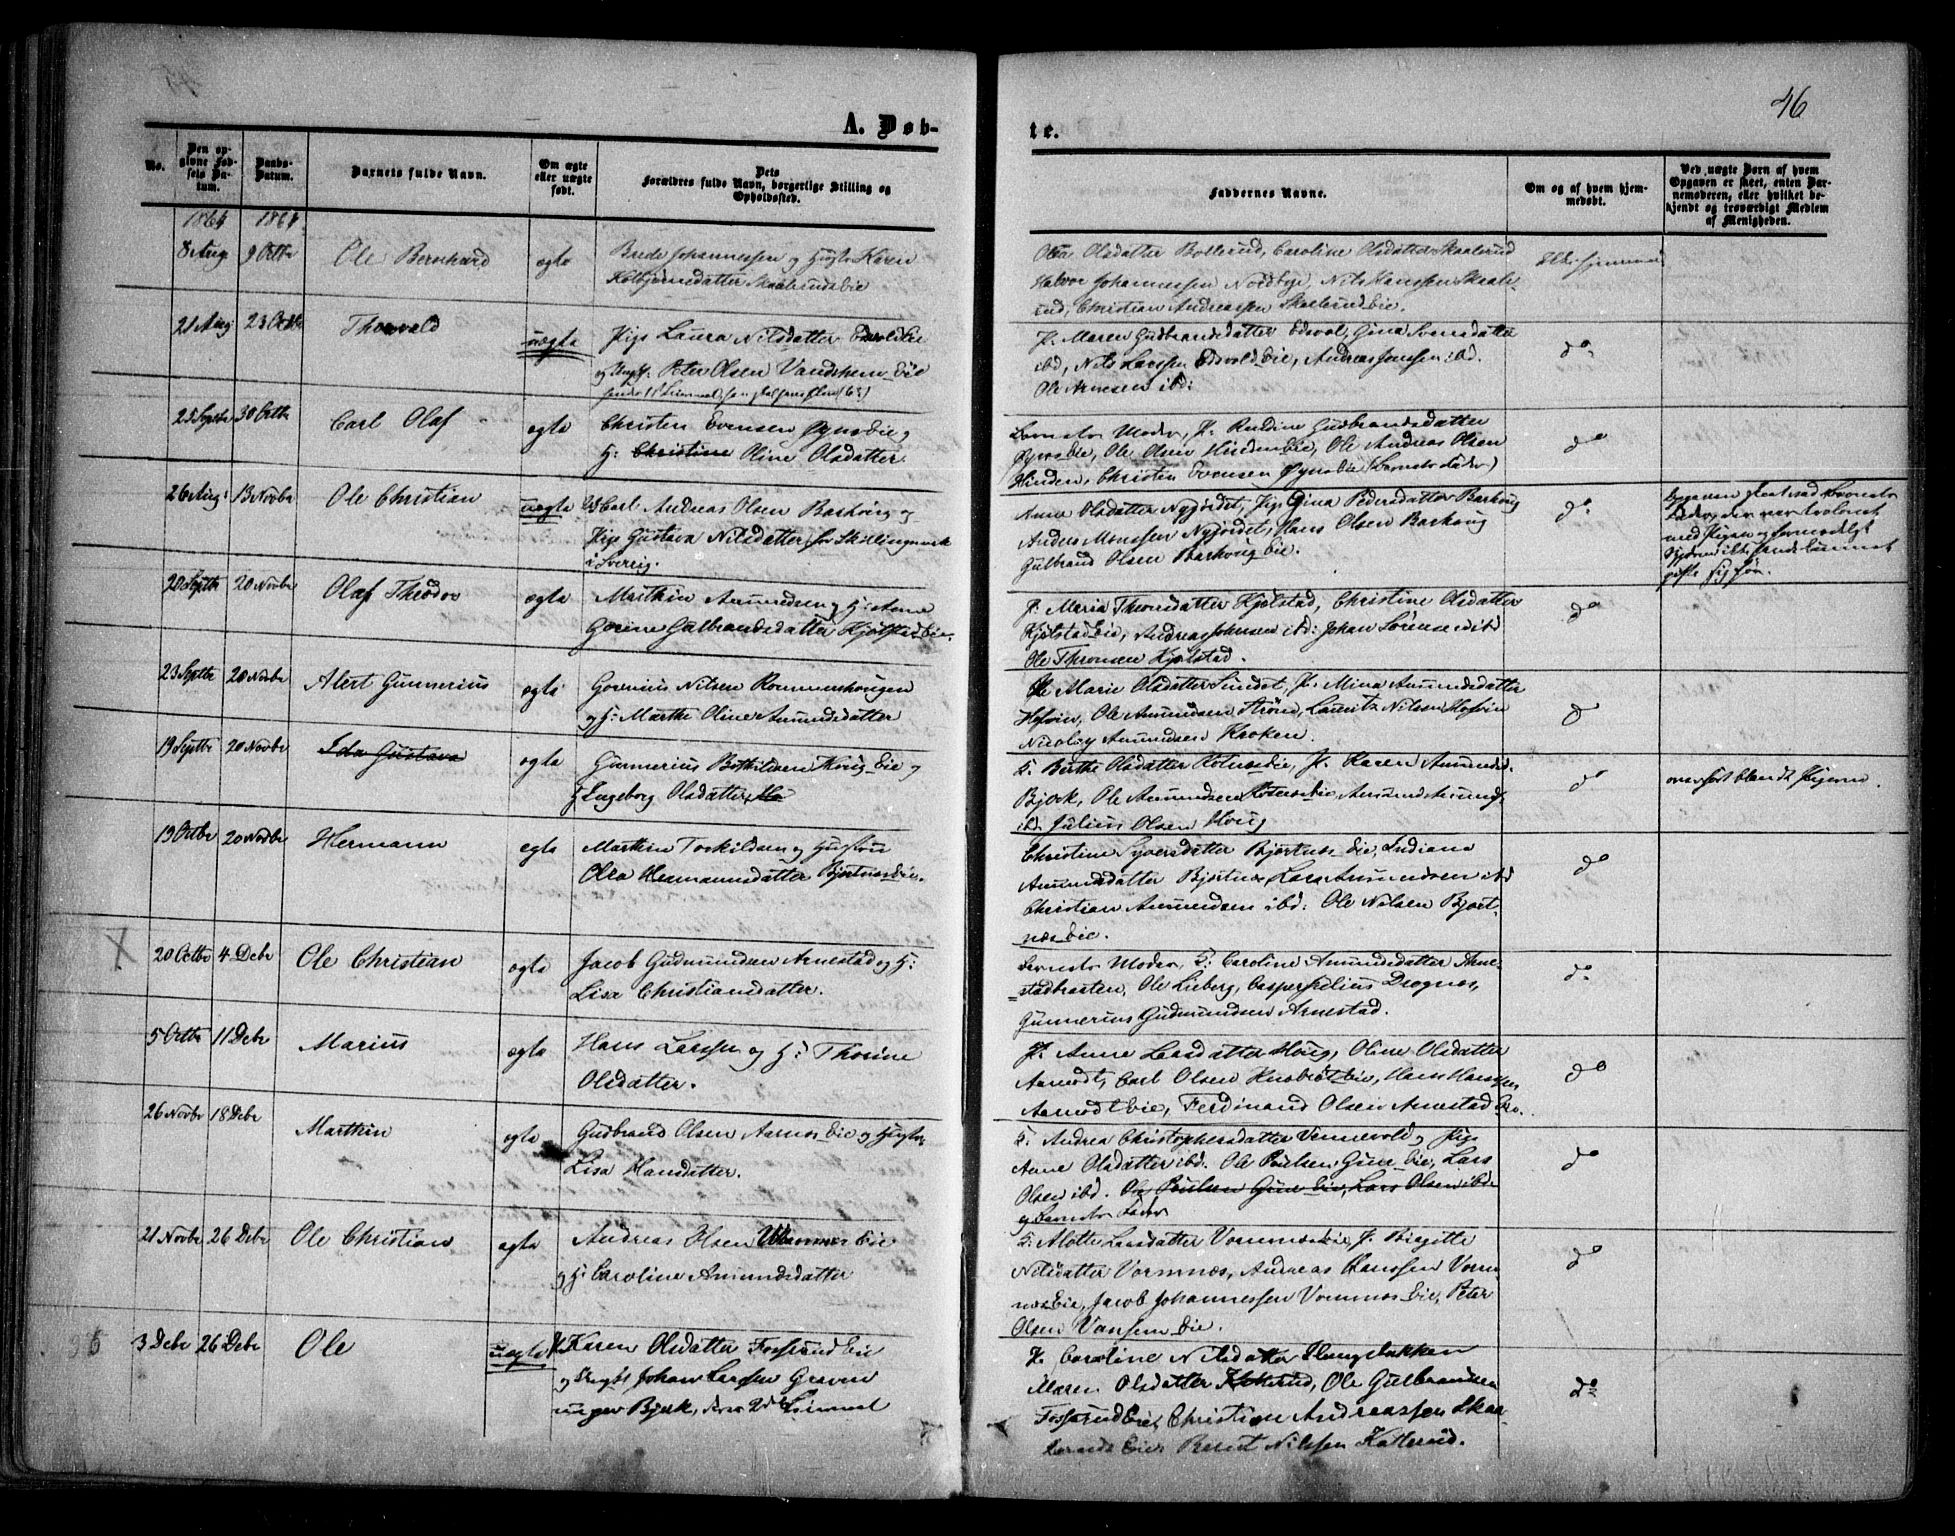 46
A. Døb-
te.
No.
Den op-
givne Fød-
sels Da-
tum.
Daabs-
Datum.
Barnets fulde Navn.
Om ægte
eller uægte
født.
Dets
Forældres fulde Navn, borgerlige Stilling og
Opholdssted.
Faddernes Navne.
Om og af hvem hjem-
medøbt.
Ved uægte Børn af hvem
Opgaven er skeet, enten Bar-
nemoderen, eller hvilket be-
kjendt og troværdigt Medlem
af Menigheden.
1864 1864
8 Aug 9 Octbr Ole Bernhard ægte
Brede Johannessen og Hustr Karen
Kolbjørnsdatter Skaalerudseie
Olea Olsdatter Bollerud, Caroline Olsdatter Skaalerud
Halvor Johannessen Nordbye, Nils Hanssen Skaale-
rud, Christian Andreassen Skaalerudeie.
Ikke hjemmed
21 Aug 23 Octbr Thorvald uægte
Pige Laura Nilsdatter Edsvoldeie
og Ungk. Peter Olsen Vandshem Eie
P. Maren Gudbrandsdatter Edsvol, Gina Svensdatter
ibd, Nils Larssen Edsvoldeie, Andreas Jenssen ibd.
Ole Arnesen ibd:
do
25 Septbr 30 Octbr Carl Olaf ægte
Christen Evensen Øynseie og
H: Christine Oline Olsdatter.
Barnets Moder, P. Randine Gudbrandsdatter
Øynseie, Ole Olsen Hindeneie, Ole Andreas Olsen
Hinden, Christen Evensen Øynseie (Barnets Fader)
do
26 Aug: 13 Novbr Ole Christian uægte
Carl Andreas Olsen Barhoug og
Pige Gustava Nilsdatter, fra Skillingmark
i Sverrig.
Anne Olsdatter Nyjordet, Pige Gina Pedersdatter Barhoug
Anders Monssen Nyjordet, Hans Olsen Barhoug
Gulbrand Olsen Barhoug Eie.
do
Opgaven skeet ved Barnets
Fader, der var trolovet
med Pigen og formedelst
Sygdom ikke havde kunnet
gifte sig før.
20 Septbr 20 Novbr Olaf Theodor ægte
Marthin Amundsen og H: Anne
Gorine Gulbrandsdatter Kjølstadeie.
P: Maria Thronsdatter Kjølstad, Christine Olsdatter
Kjølstadeie, Andreas Johnsen ibd: Johan Sørensen ibd
Ole Thronsen Kjølstad.
do
23 Septbr 20 Novbr Alert Gunnerius ægte
Gorenius Nilsen Rommenhougen
og H: Marthe Oline Amundsdatter
Marie Olsdatter Sundet, P. Mina Amundsdatter
Hofvin, Ole Amundsen Strøm, Lauritz Nilsen Hofvin
Nicolay Amundsen Kroken.
do
19 Septbr 20 Novbr Ida Gustava ægte
Gunnerius Botkildsen Houg Eie og
H Ingeborg Olsdatter
Birthe Olsdatter Rotnæseie, P. Karen Amundsd.
Bjork, Ole Amundsen Rotnæseie, Amund Amunds.
ibd. Julius Olsen Houg
do
overført blandt Pigerne.
19 Octbr 20 Novbr Hermann ægte
Marthin Torkildsen og Hustru
Olea Hermannsdatter Bjertnæseie.
Christine Syversdatter Bjertnæs Eie, Indiana
Amundsdatter Bjertnæs, Lars Amundsen ibd
Christian Amundsen ibd: Ole Nilsen Bjert-
næseie.
do
X 20 Octbr 4 Debr Ole Christian ægte
Jacob Gudmundsen Arnestad og H:
Lisa Christiansdatter.
Barnets Moder, Caroline Amundsdatter Arne-
stadbraaten, Ole Lieberg, Casper Julius Drognæs,
Gunnerius Gudmundsen Arnestad.
do
5 Octbr 11 Debr Marius ægte
Hans Larssen og H: Thorine
Olsdatter.
P. Anne Larsdatter Houg, Oline Olsdatter
Aamodt, Carl Olsen Husbøleie, Hans Hanssen
Aamodteie, Ferdinand Olsen Arnestad
do
26 Novbr 18 Debr Marthin ægte
Gudbrand Olsen Aarnæs Eie og Hustr
Lisa Hansdatter.
Andrea Christophersdatter Vennevold og Pige
Anne Olsdatter ibd. Ole Poulsen Gun Eie, Lars
Olsen ibd. Ole Poulsen Gun Eie, Lars Olsen ibd
og Barnets Fader
do
21 Novbr 26 Debr Ole Christian ægte
Andreas Olsen Vormnæs Eie
og H: Caroline Amundsdatter
Alotte Larsdatter Vormnæseie P. Birgitte
Nilsdatter Vormnæs, Andreas Hanssen Vorm-
næseie, Jacob Johannessen Vormnæs Eie, Peter
Olsen Vansem Eie.
do
96 3 Debr 26 Debr Ole uægte
Karen Olsdatter Fosserud Eie
og Ungk. Johan Larssen Graven
unger Bjerk, deres 2det Leiermaal
P. Caroline Nilsdatter Slangebakken
Maren Olsdatter Katterud, Ole Gulbrandsen
Fosserudeie, Christian Andreassen Skaa-
leruds Eie Berent Nilssen Katterud.
do